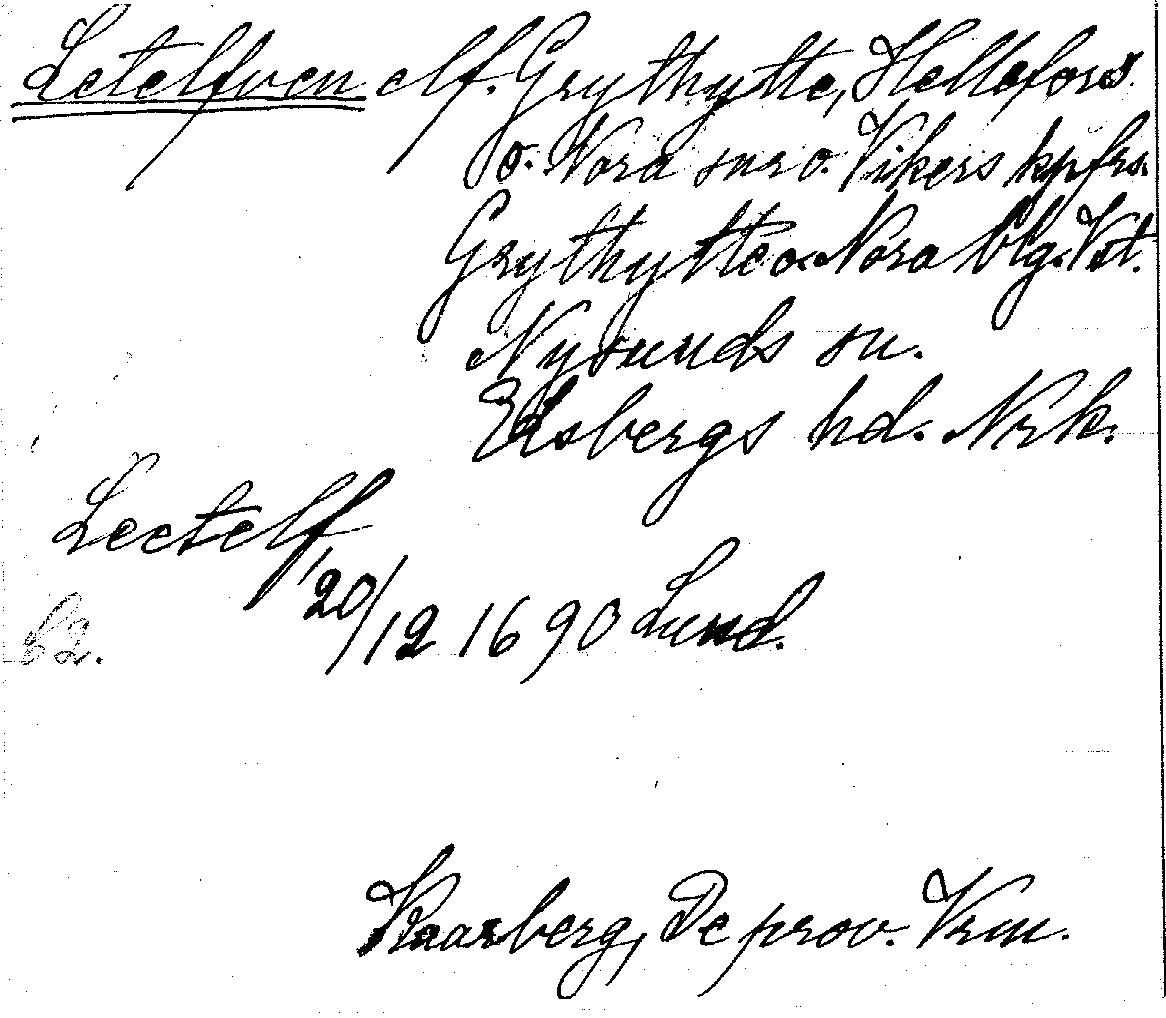 Letelfven elf. Grythytte, Hellefors
o. Nora snr o. Vikers kpfrs.
Grythytte o. Nora blg. Vst.
Nysunds sn.
Edsbergs hd. Nrk.
Leetelf
20/12 1690 Lund.
62.
Kaarberg, De prov. Vrm.